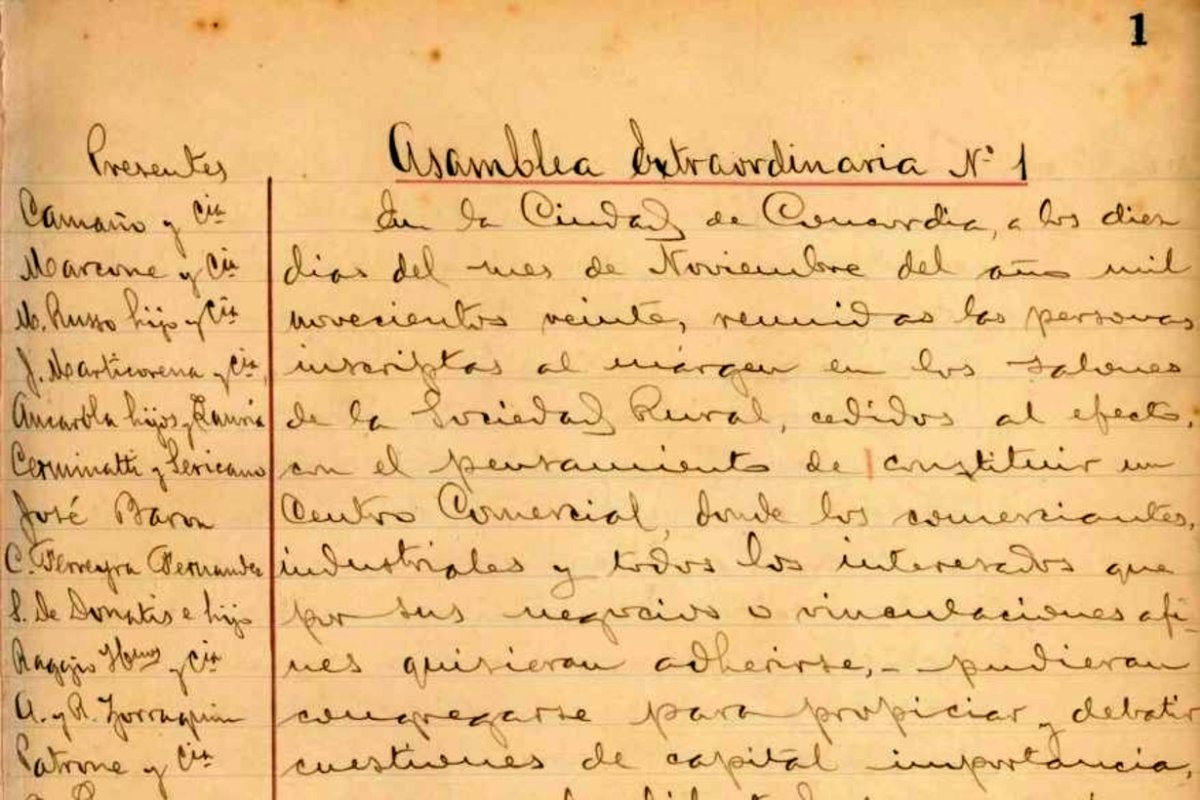 1
Asamblea Extraordinaria Nº 1
Presentes
Camaño y Cía
Marcone y Cía
M. Russo hijo y Cía
J. Marticorena y Cía
hijos y
Cerminatti y Sericano
José Baron
C. Ferreyra Fernandez
S. De Donatis e hijo
Raggio Hnos y Cía
A. y R. Zorraquin
Patrone y Cía
En la Ciudad de Concordia, a los diez
dias del mes de Noviembre del año mil
novecientos veinte, reunidas las personas
inscriptas al márgen en los salones
de la Sociedad Rural, cedidos al efecto,
con el pensamiento de constituir un
Centro Comercial, donde los comerciantes,
industriales y todos los interesados que
por sus negocios o vinculaciones afi-
nes quisieran adherirse, - pudieran
congregarse para propiciar y debatir
cuestiones de capital importancia,